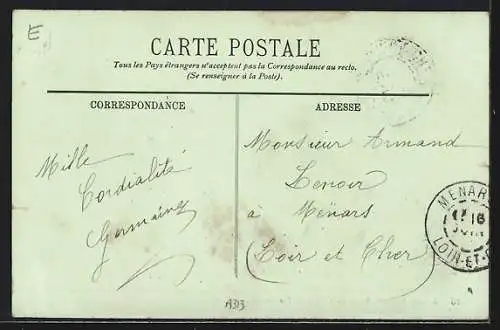 E
CARTE POSTALE
Tous les Pays étrangers n'acceptent pas la Correspondance au recto.
(Se renseigner à la Poste).
CORRESPONDANCE
ADRESSE
Mille
Cordialité
Germaine
Monsieur Armand
Lenoir
à Ménars
(Loir et Cher)
MENARS
16
LOIR-ET-C
A313